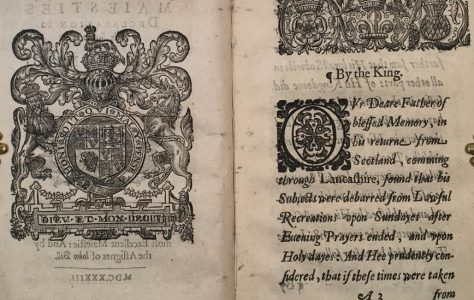 MAIESTIES
DECLARATION to
DIEV·ET·MON·DROIT
most Excellent Maiestie: And by
the Assignes of Iohn Bill.
MDCXXXIII
all other parts of His Kingdome did
¶ By the King.
OVr Deare Father of
blessed Memory, in
his returne from
Scotland, comming
through Lancashire, found that his
Subiects were debarred from Lawful
Recreations vpon Sundayes after
Evening Prayers ended, and vpon
Holy dayes: And Hee prudently con-
sidered, that if these times were taken
A 2 from